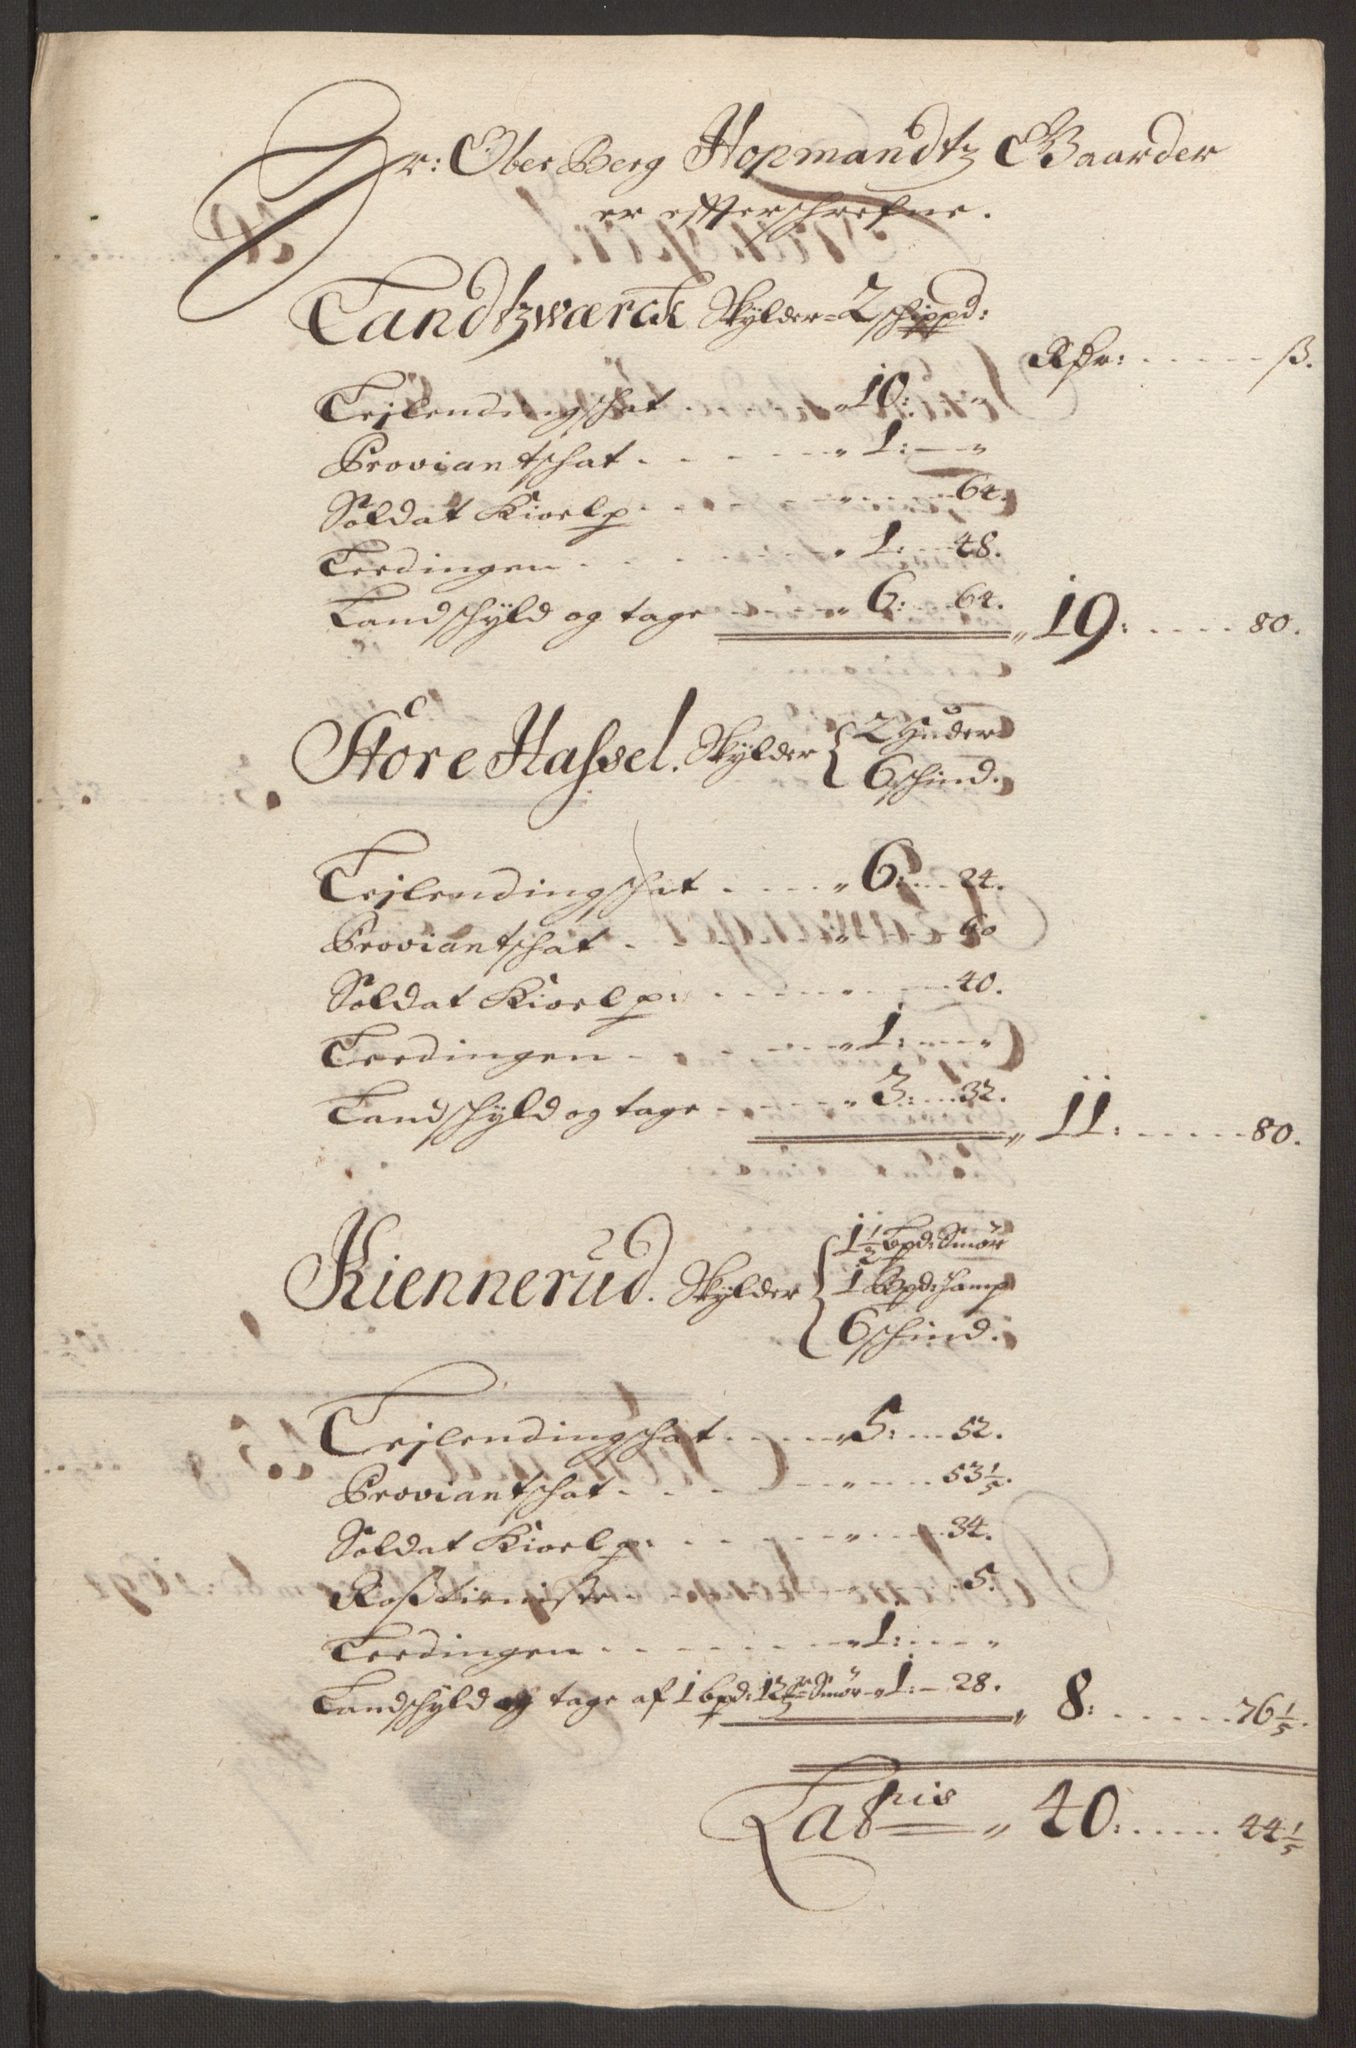 Hr: Ober Berg Hopmandtz Gaarder
er effterschrefne.
Landtzwærck Skylder = 2 schippd:
Rdr: ß.
Leylendingschat 10:
Proviantschat 1:
Soldat Kioelp 64.
Leedingen 1: 48.
Landschyld og tage 6: 64. 19: 80.
Store Hassel. Skylder { 2 Huder
6 schind.
Leylendingschat 6: 24.
Proviantschat 60
Soldat Kioelp: 40.
Leedingen 1:
Landschyld og tage 3: 32. 11: 80.
Kiennerud. Skylder { 1½ Bpd: Smör
1 Bpd: hamp
6 schind.
Leylendingschat 5: 52.
Proviantschat 53 1/5.
Soldat Kioelp: 34.
Rosstieniste 5.
Leedingen 1:
Landschyld og tage af 1 bpd: 12 Smör 1: 28. 8: 76 1/5.
Lateris 40: 44 1/5